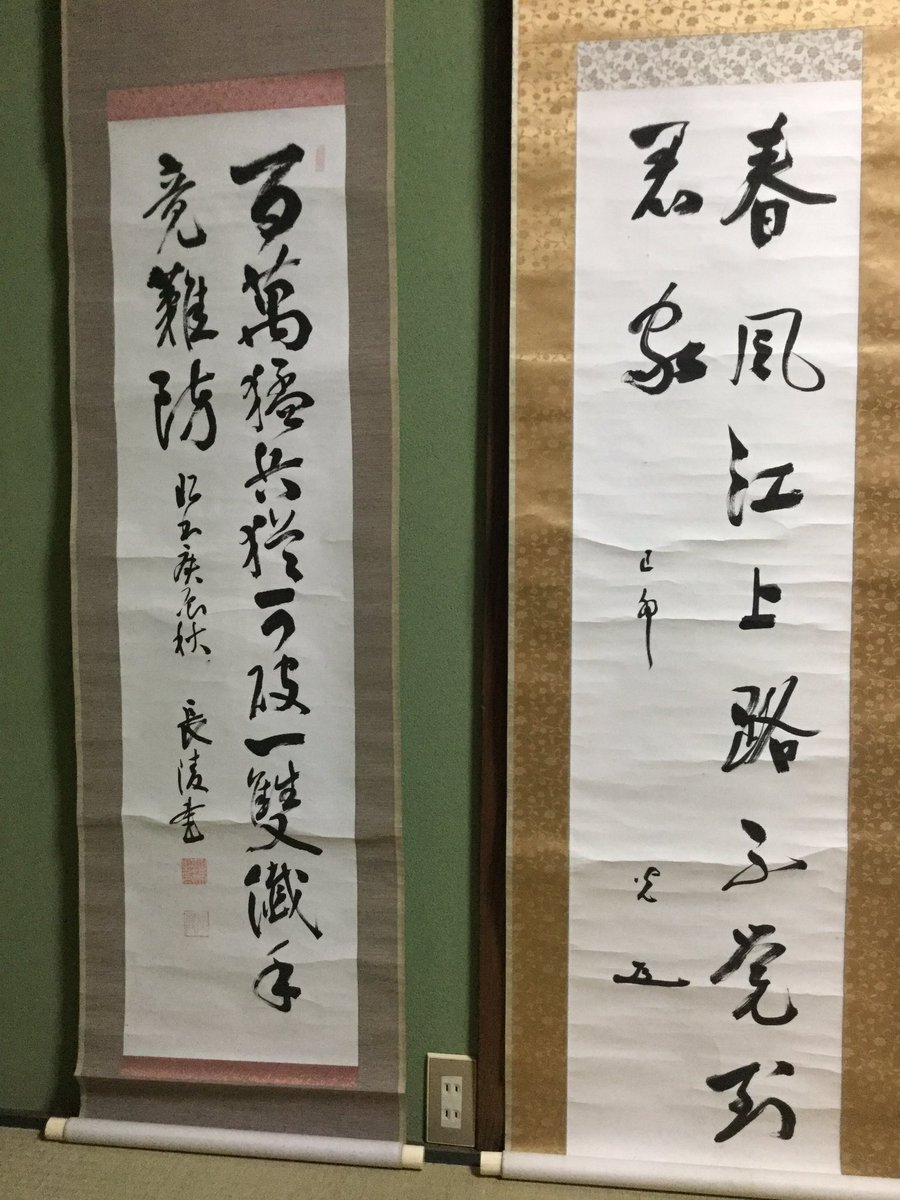 春風江上路不覚到
君家
己卯
百萬猛兵猶可破一雙纖手
竟難防
昭和庚辰秋 長陵書